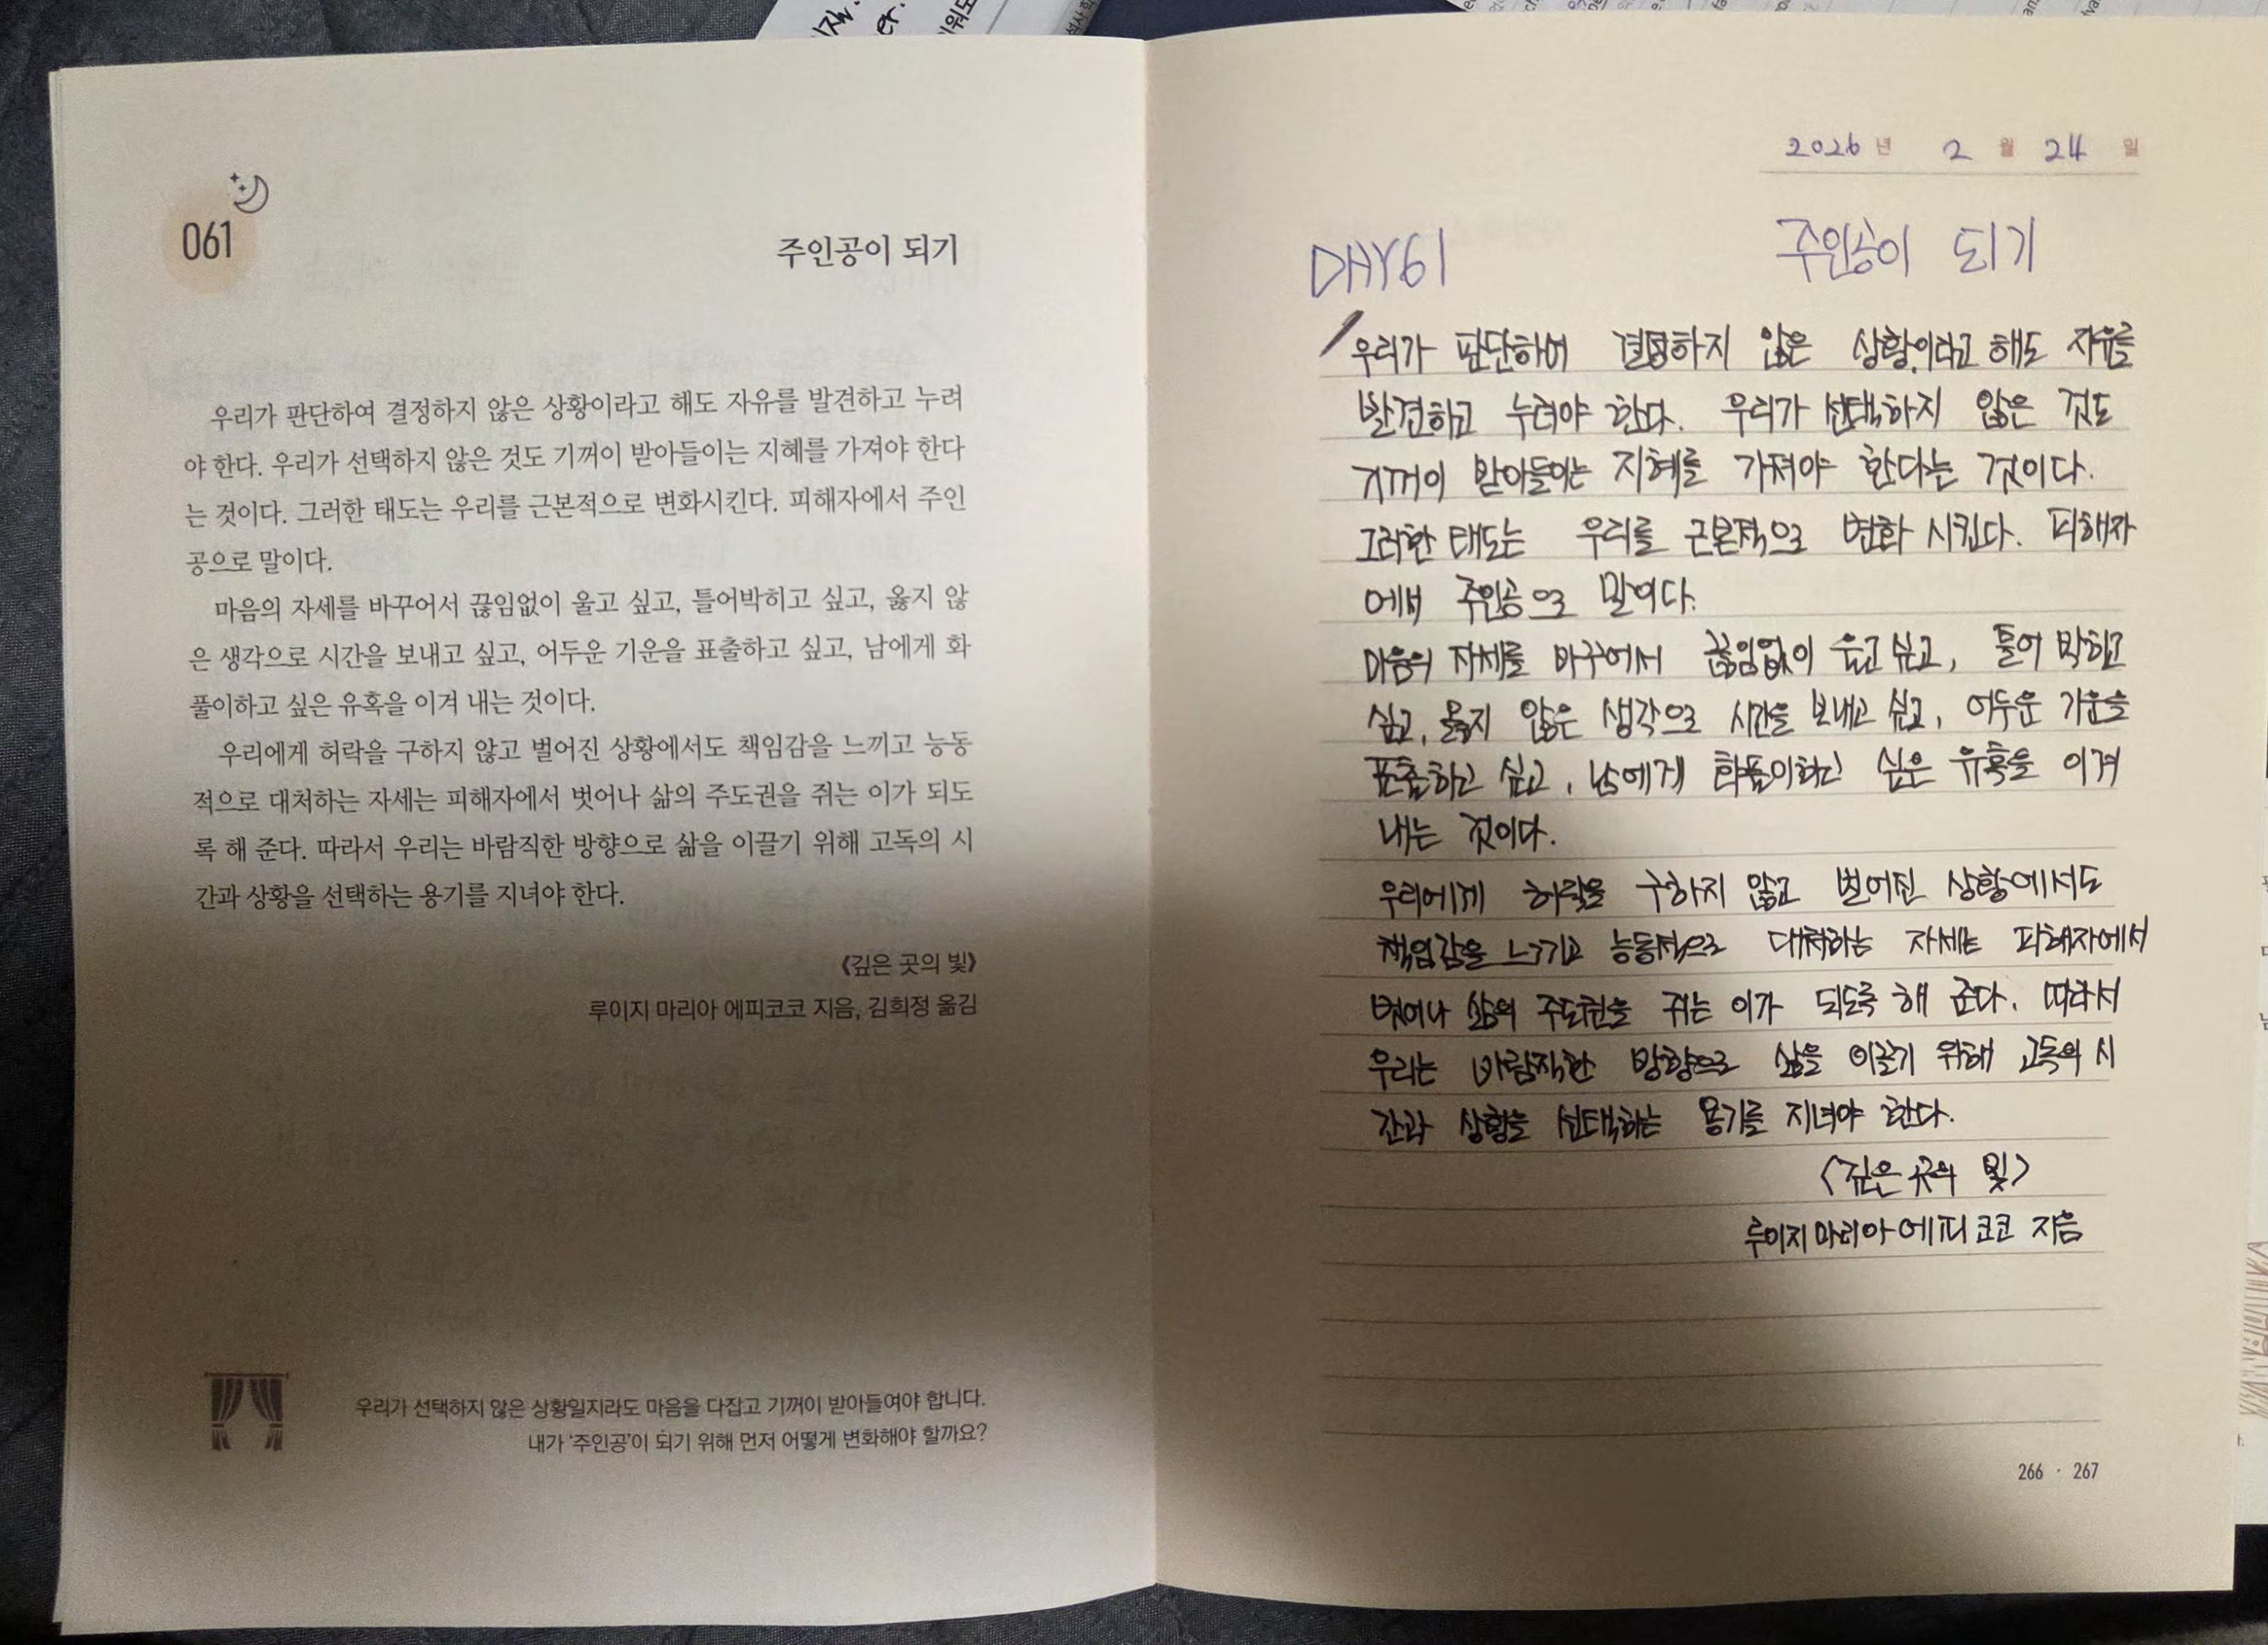 061
주인공이 되기
우리가 판단하여 결정하지 않은 상황이라고 해도 자유를 발견하고 누려
야 한다. 우리가 선택하지 않은 것도 기꺼이 받아들이는 지혜를 가져야 한다
는 것이다. 그러한 태도는 우리를 근본적으로 변화시킨다. 피해자에서 주인
공으로 말이다.
마음의 자세를 바꾸어서 끊임없이 울고 싶고, 틀어박히고 싶고, 옳지 않
은 생각으로 시간을 보내고 싶고, 어두운 기운을 표출하고 싶고, 남에게 화
풀이하고 싶은 유혹을 이겨 내는 것이다.
우리에게 허락을 구하지 않고 벌어진 상황에서도 책임감을 느끼고 능동
적으로 대처하는 자세는 피해자에서 벗어나 삶의 주도권을 쥐는 이가 되도
록 해 준다. 따라서 우리는 바람직한 방향으로 삶을 이끌기 위해 고독의 시
간과 상황을 선택하는 용기를 지녀야 한다.
《깊은 곳의 빛》
루이지 마리아 에피코코 지음, 김희정 옮김
우리가 선택하지 않은 상황일지라도 마음을 다잡고 기꺼이 받아들여야 합니다.
내가 ‘주인공’이 되기 위해 먼저 어떻게 변화해야 할까요?
2026 년 2 월 24 일
DAY61 주인공이 되기
우리가 판단하여 결정하지 않은 상황이라고 해도 자유를
발견하고 누려야 한다. 우리가 선택하지 않은 것도
기꺼이 받아들이는 지혜를 가져야 한다는 것이다.
그러한 태도는 우리를 근본적으로 변화 시킨다. 피해자
에서 주인공으로 말이다.
마음의 자세를 바꾸어서 끊임없이 울고 싶고, 틀어 박히고
싶고, 옳지 않은 생각으로 시간을 보내고 싶고, 어두운 기운을
표출하고 싶고, 남에게 화풀이하고 싶은 유혹을 이겨
내는 것이다.
우리에게 허락을 구하지 않고 벌어진 상황에서도
책임감을 느끼고 능동적으로 대처하는 자세는 피해자에서
벗어나 삶의 주도권을 쥐는 이가 되도록 해 준다. 따라서
우리는 바람직한 방향으로 삶을 이끌기 위해 고독의 시
간과 상황을 선택하는 용기를 지녀야 한다.
<깊은 곳의 빛>
루이지 마리아 에피 코코 지음
266 · 267